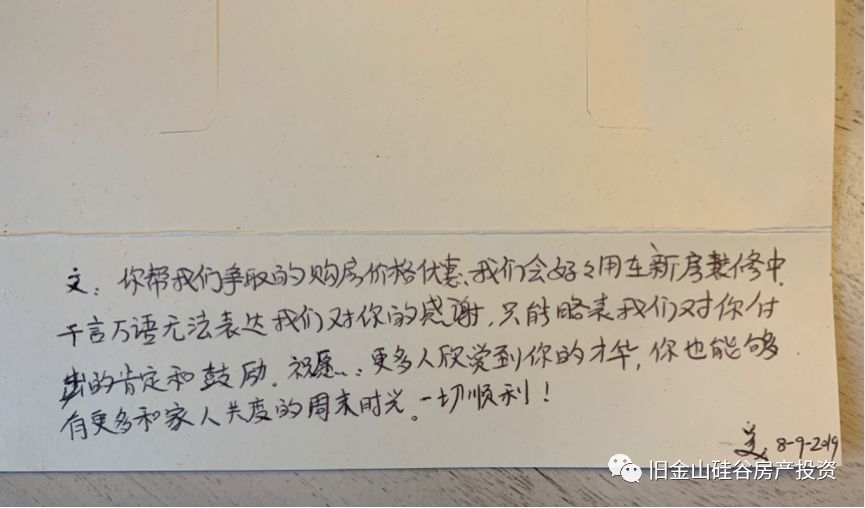 文：你帮我们争取的购房价格优惠、我们会好々用在新房装修中.
千言万语无法表达我们对你的感谢,只能略表我们对你付
出的肯定和鼓励。祝愿…：更多人欣赏到你的才华,你也能够
有更多和家人共度的周末时光。一切顺利！
美 8-9-2019
旧金山硅谷房产投资